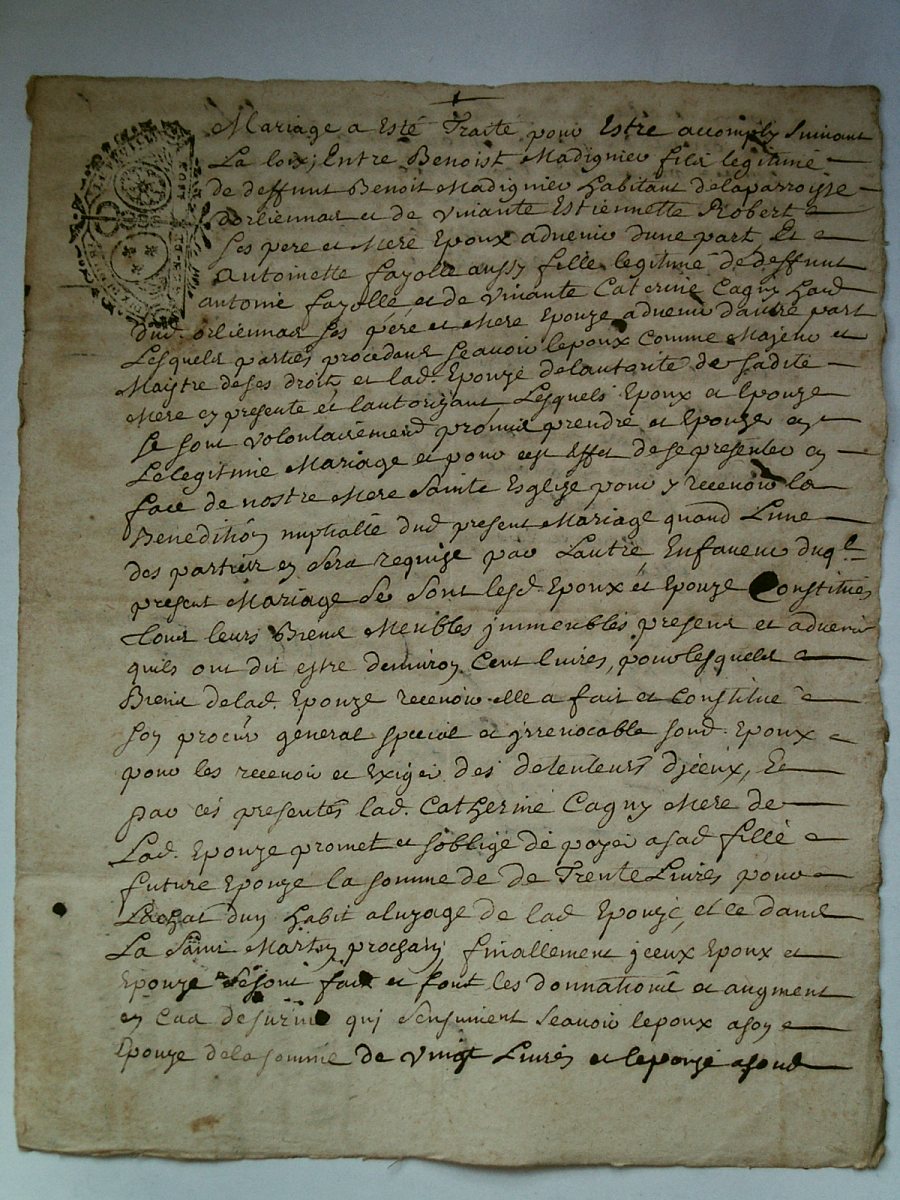 Mariage a Esté Traité pour Estre accomply suivant
La loix; Entre Benoist Madignier fils legitime
de deffunt Benoit Madignier habitant delaparroisse
dorliennas et de vivante Estiennette Robert
ses pere et Mere Epoux advenir dune part, Et
Antoinette fayolle aussy fille legitime de deffunt
antoine fayolle et de vivante Caterine Cagny hab
dud. orliennas ses pere et Mere Epouze advenir d'autre part
Lesquels parties procedans scavoir lepoux comme Majeur et
Maistre deses droits et lad. Epouze delautorité de sadite
Mere cy presente et lautorizant, Lesquels Epoux et Epouze
se sont volontairement promis prendre et Epouzer en
Le legitime Mariage et pour cest Effet dese presenter en
face de nostre Mere Sainte Esglize pour y recevoir la
Benediction nuptialle dud present Mariage quand Lune
des parties en sera requize par Lautre Enfaveur duql
present Mariage se sont lesd. Epoux et Epouze Constitués
tous leurs Biens Meubles jmmeubles presens et advenir
quils ont dit estre denviron Cent livres, pour lesquels
Biens delad. Epouze recevoir elle a fait et constitué
son procur general special et jrrevocable sond. Epoux
pour les recevoir et Exiger des detenteurs djceux, Et
par ces presentes lad. Catherine Cagny Mere de
Lad. Epouze promet et soblige de payer asad fille
future Epouze la somme de de Trente Livres pour
Lachat dun habit aluzage de lad Epouze, et ce dans
La Saint Martin prochain, finallement jceux Epoux et
Epouze se sont fait et font les donnations et augment
en cas de survie qui sensuivent scavoir lepoux ason
Epouze dela somme de vingt Livres et lepouze asond